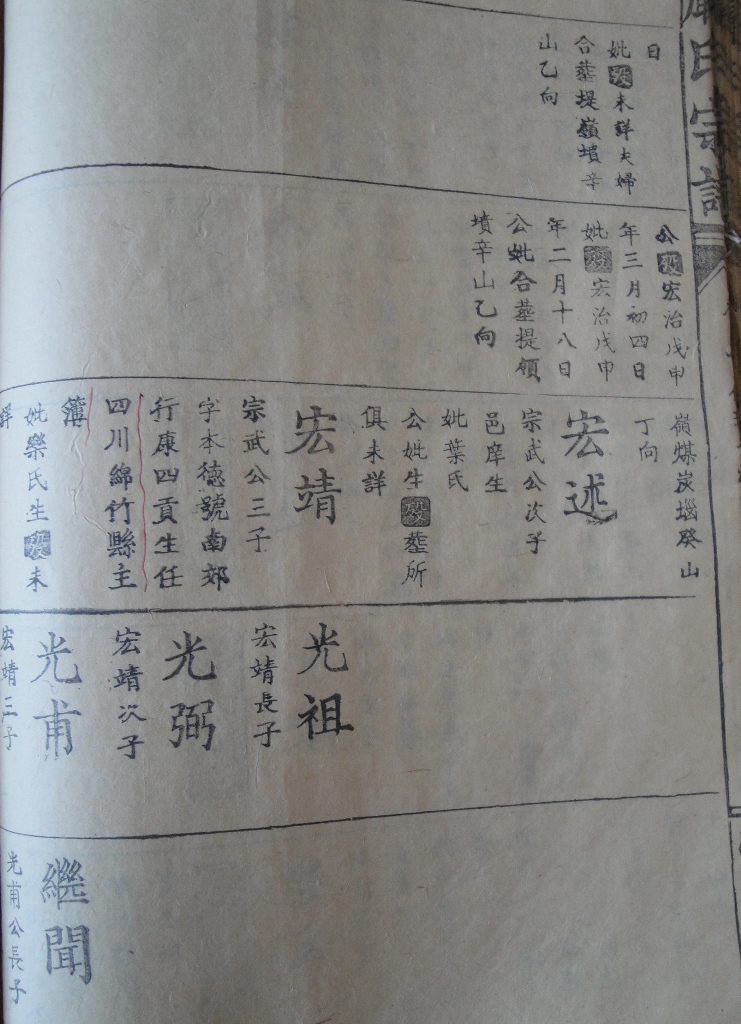 氏宗譜
日
妣歿未詳夫婦
合塟提嶺墳辛
山乙向
公歿宏治戊申
年三月初四日
妣歿宏治戊申
年二月十八日
公妣合塟提嶺
墳辛山乙向
嶺煤炭堖癸山
丁向
宏述
宗武公次子
邑庠生
妣葉氏
公妣生歿塟所
俱未詳
宏靖
宗武公三子
字本德號南郊
行康四貢生任
四川綿竹縣主
簿
妣樂氏生歿未
詳
光祖
宏靖長子
光弼
宏靖次子
光甫
宏靖三子
繼聞
光甫公長子